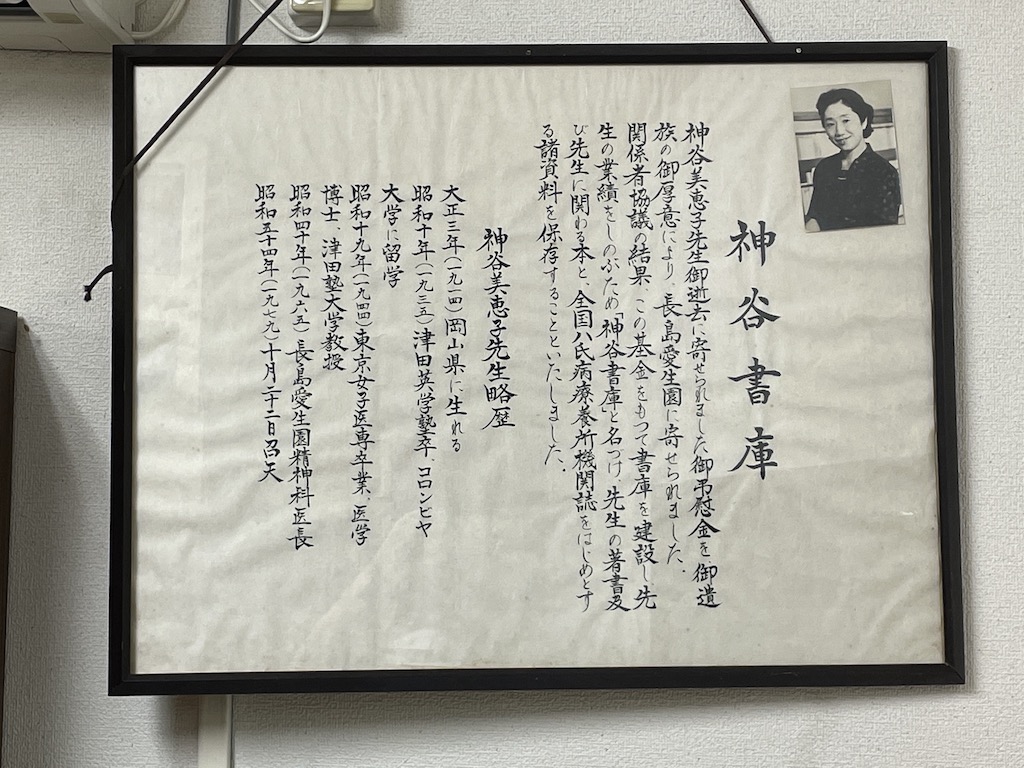 神谷書庫
神谷美恵子先生御逝去に寄せられました御弔慰金を御遺
族の御厚意により、長島愛生園に寄せられました。
関係者協議の結果、この基金をもって書庫を建設し先
生の業績をしのぶため「神谷書庫」と名づけ、先生の著書及
び先生に関わる本と、全国ハ氏病療養所機関誌をはじめとす
る諸資料を保存することといたしました。
神谷美恵子先生略歴
大正三年(一九一四)岡山県に生れる
昭和十年(一九三五)津田英学塾卒、コロンビヤ
大学に留学
昭和十九年(一九四四)東京女子医専卒業、医学
博士、津田塾大学教授
昭和四十年(一九六五)長島愛生園精神科医長
昭和五十四年(一九七九)十月二十二日召天